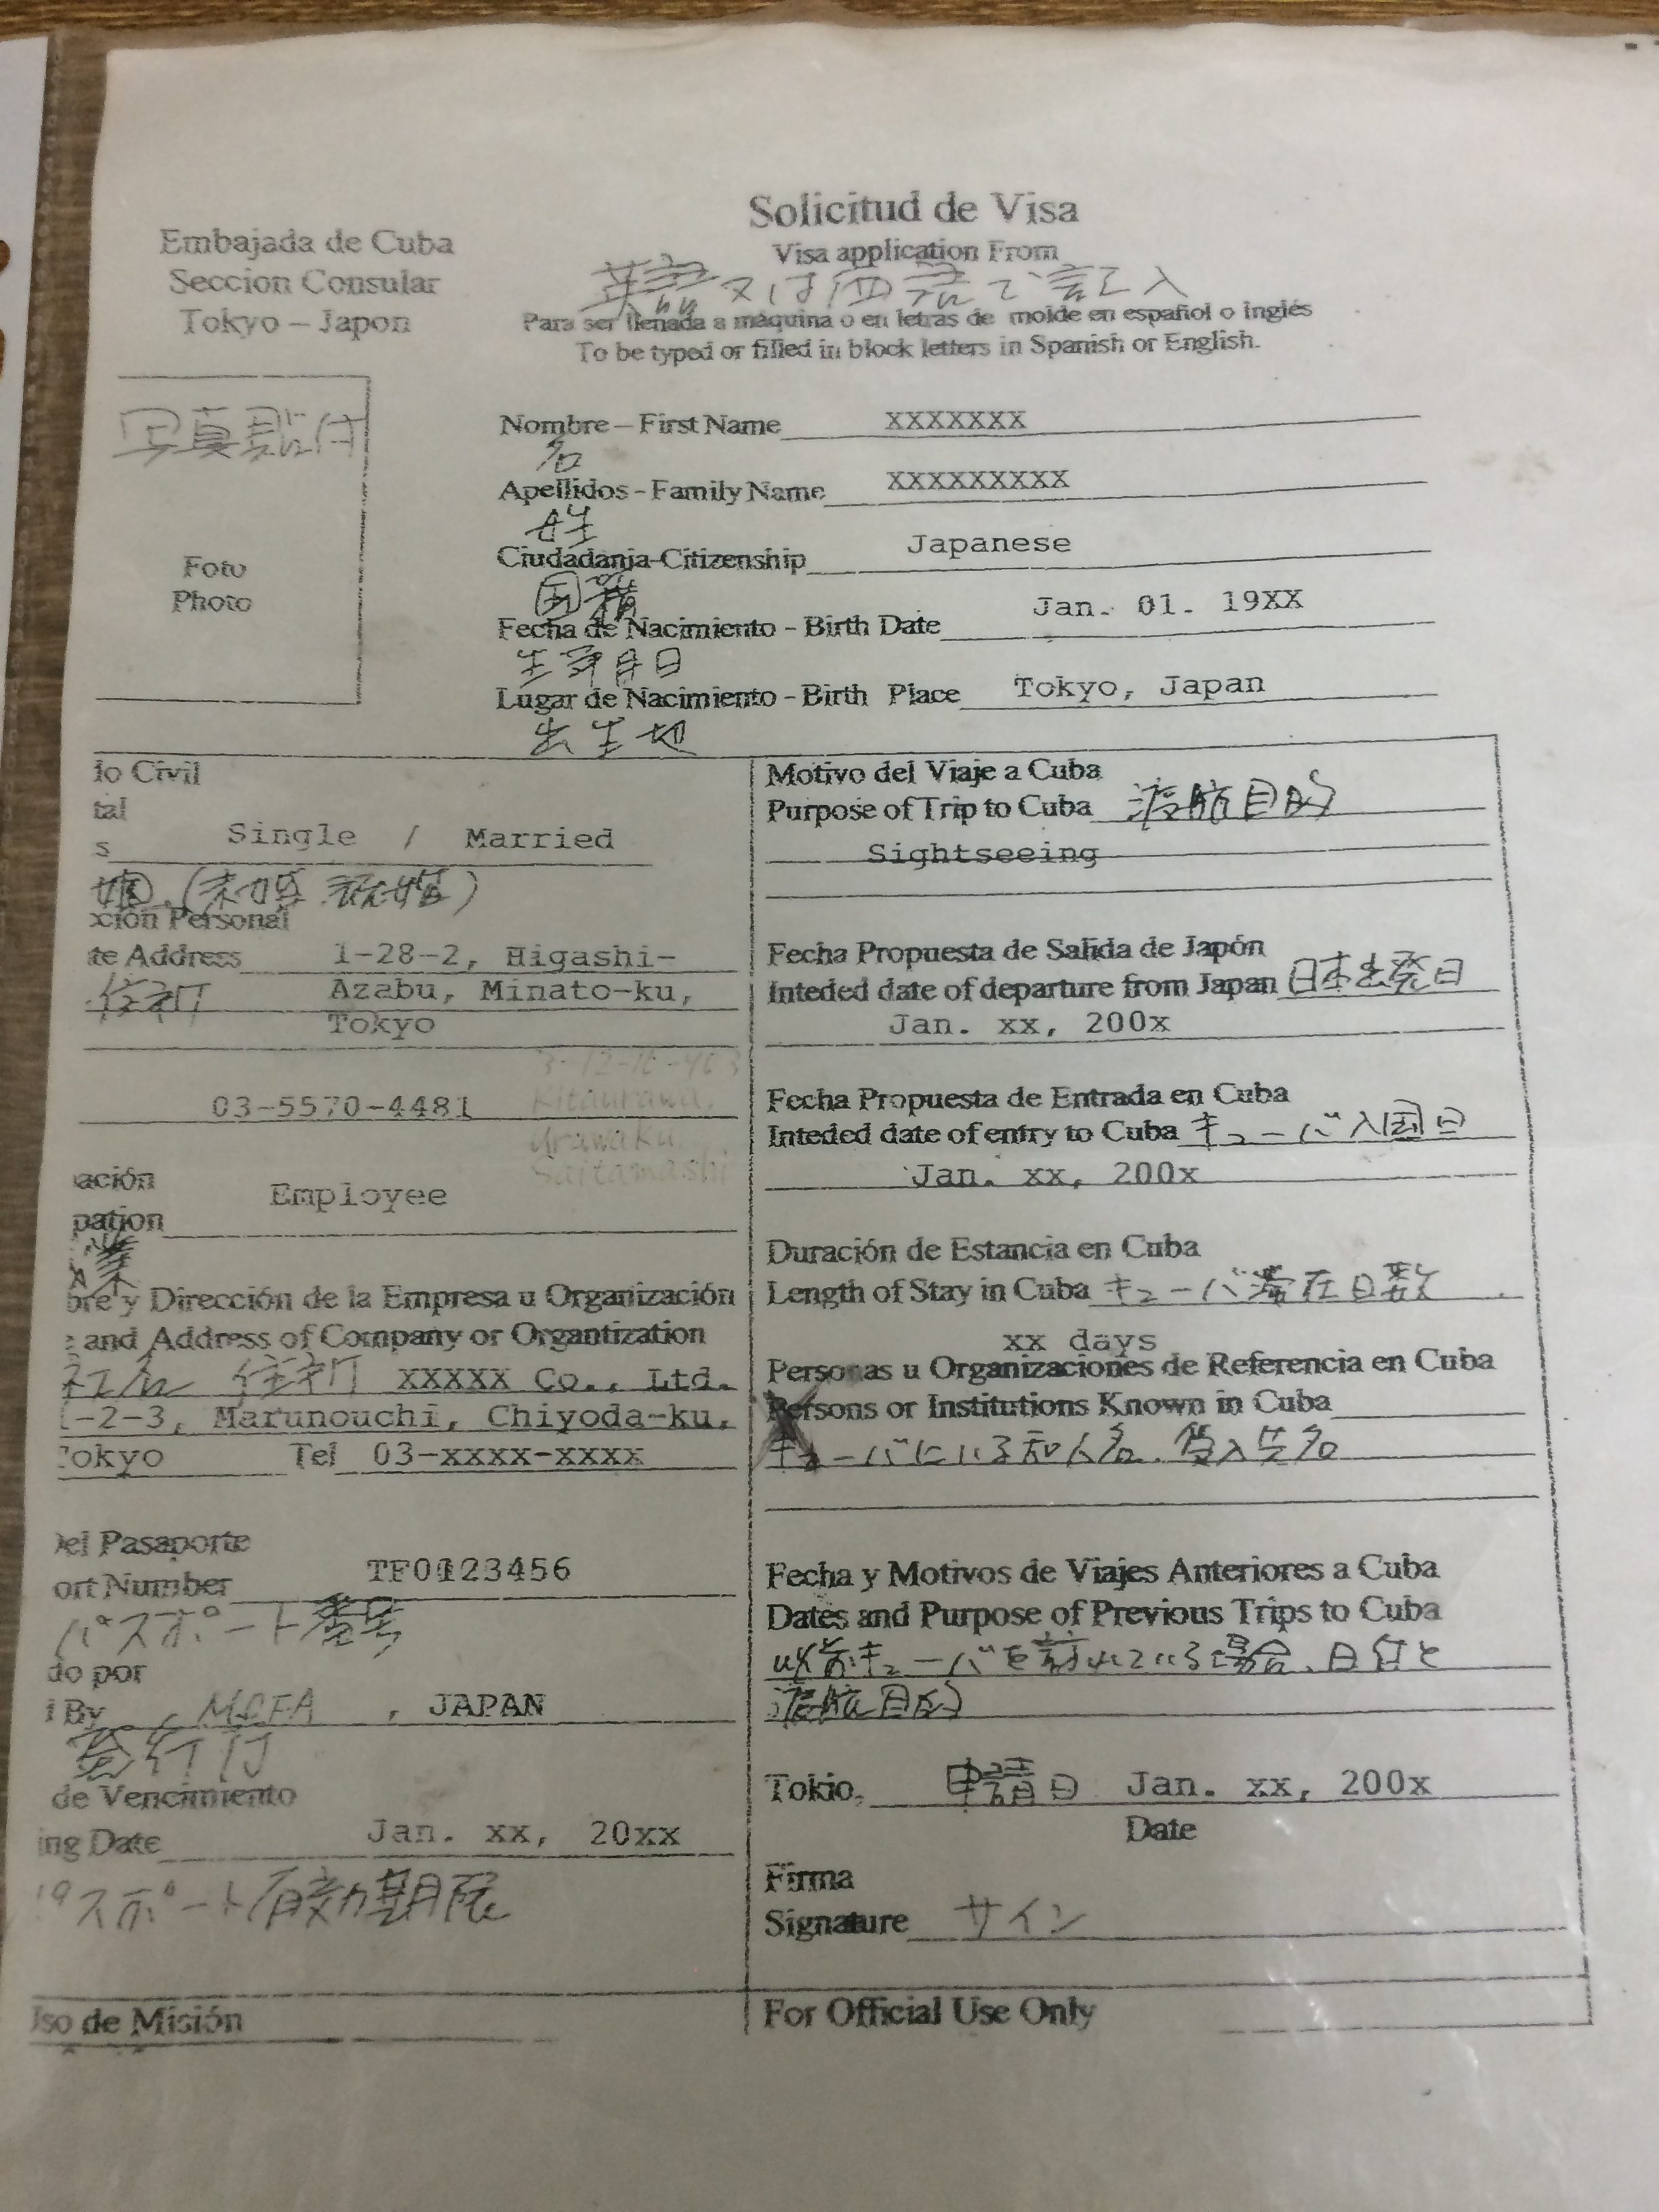 Solicitud de Visa
Visa application From
英語又は西語で記入
Para ser llenada a máquina o en letras de molde en español o inglés
To be typed or filled in block letters in Spanish or English.
Embajada de Cuba
Seccion Consular
Tokyo – Japon
写真貼付
Foto
Photo
Nombre – First Name XXXXXXX
名
Apellidos - Family Name XXXXXXXXX
姓
Ciudadania-Citizenship Japanese
国籍
Fecha de Nacimiento - Birth Date Jan. 01. 19XX
生年月日
Lugar de Nacimiento - Birth Place Tokyo, Japan
出生地
do Civil
tal
s Single / Married
婚.(未婚 既婚)
xción Personal
te Address 1-28-2, Higashi-
住所 Azabu, Minato-ku,
Tokyo
3-12-16-403
03-5570-4481 Kitaurawa,
Urawaku,
Saitamashi
ación
pation Employee
業
bre y Dirección de la Empresa u Organización
e and Address of Company or Organtization
社名 住所 XXXXX Co., Ltd.
1-2-3, Marunouchi, Chiyoda-ku,
Tokyo Tel 03-xxxx-xxxx
Del Pasaporte
ort Number TF0123456
パスポート番号
do por
l By MOFA , JAPAN
発行庁
de Vencimiento
ing Date Jan. xx, 20xx
パスポート有効期限
Uso de Misión
Motivo del Viaje a Cuba
Purpose of Trip to Cuba 渡航目的
Sightseeing
Fecha Propuesta de Salida de Japón
Inteded date of departure from Japan 日本出発日
Jan. xx, 200x
Fecha Propuesta de Entrada en Cuba
Inteded date of entry to Cuba キューバ入国日
Jan. xx, 200x
Duración de Estancia en Cuba
Length of Stay in Cuba キューバ滞在日数
xx days
Personas u Organizaciones de Referencia en Cuba
Persons or Institutions Known in Cuba
キューバにいる知人名、
Fecha y Motivos de Viajes Anteriores a Cuba
Dates and Purpose of Previous Trips to Cuba
以前キューバを訪れている場合、日付と
渡航目的
Tokio, 申請日 Jan. xx, 200x
Date
Firma
Signature サイン
For Official Use Only